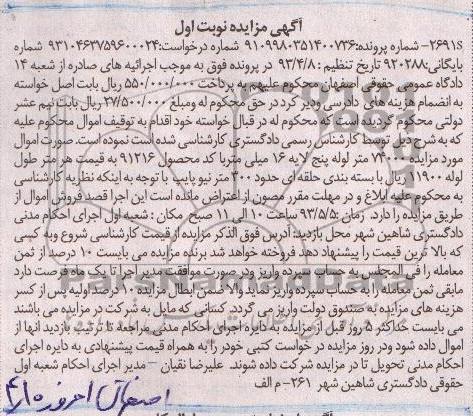 آگهی مزایده نوبت اول
۲۶۹۱S- شماره پرونده:۹۱۰۹۹۸۰۳۵۱۴۰۰۷۳۶ شماره درخواست:۹۳۱۰۴۶۳۷۵۹۶۰۰۰۲۴ شماره
بایگانی:۹۲۰۲۸۸ تاریخ تنظیم :۹۳/۴/۸ در پرونده فوق به موجب اجرائیه های صادره از شعبه ۱۴
دادگاه عمومی حقوقی اصفهان محکوم علیهم به پرداخت ۵۵۰/۰۰۰/۰۰۰ ریال بابت اصل خواسته
به انضمام هزینه های دادرسی و دیر کرد در حق محکوم له و مبلغ ۲۷/۵۰۰/۰۰۰ ریال بابت نیم عشر
دولتی محکوم گردیده است که محکوم له در قبال خواسته خود اقدام به توقیف اموال محکوم علیه
که به شرح ذیل توسط کارشناس رسمی دادگستری کارشناسی شده است نموده است. صورت اموال
مورد مزایده ۷۴۰۰۰ متر لوله پنج لایه ۱۶ میلی متر با کد محصول ۹۱۲۱۶ به قیمت هر متر طول
لوله ۱۹۰۰۰ ریال با بسته بندی حلقه ای حدود ۳۰۰ متر نیو پایپ با توجه به اینکه نظریه کارشناسی
به محکوم علیه ابلاغ و در مهلت مقرر مصون از اعتراض مانده است این اجرا قصد فروش اموال از
طریق مزایده را دارد. زمان :۹۳/۵/۵ ساعت ۱۰ الی ۱۱ صبح مکان : شعبه اول اجرای احکام مدنی
دادگستری شاهین شهر محل بازدید: آدرس فوق الذکر مزایده از قیمت کارشناسی شروع و به کسی
که بالا ترین قیمت را پیشنهاد دهد فروخته خواهد شد برنده مزایده می بایست ۱۰ درصد از ثمن
معامله را فی المجلس به حساب سپرده واریز و در صورت موافقت مدیر اجرا تا یک ماه فرصت دارد
مابقی ثمن معامله را به حساب سپرده واریز نماید والا ضمن ابطال مزایده ۱۰ درصد اولیه پس از کسر
هزینه های مزایده به صندوق دولت واریز می گردد. کسانی که مایل به شرکت در مزایده می باشند
می بایست حداکثر ۵ روز قبل از مزایده به دایره اجرای احکام مدنی مراجعه تا ترتیب بازدید آنها از
اموال داده شود و در روز مزایده در خواست کتبی خود را به همراه قیمت پیشنهادی به دایره اجرای
احکام مدنی تحویل تا در مزایده شرکت داده شوند. علیرضا نقیان - مدیر اجرای احکام شعبه اول
حقوقی دادگستری شاهین شهر ۲۶۱- م الف
اصفهان امروز